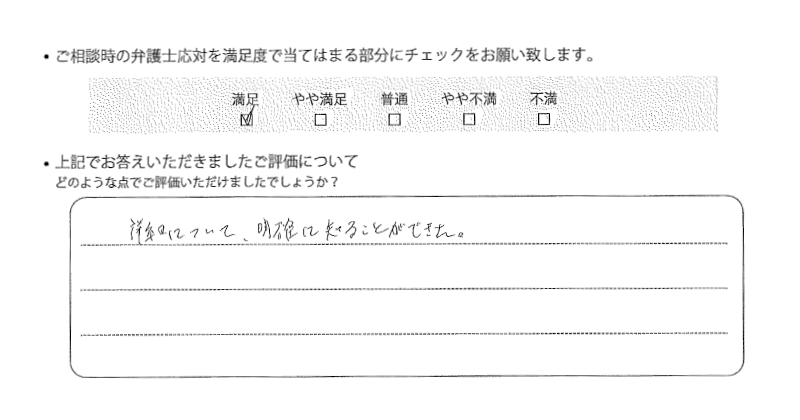 ・ご相談時の弁護士応対を満足度で当てはまる部分にチェックをお願い致します。
満足 やや満足 普通 やや不満 不満
・上記でお答えいただきましたご評価について
どのような点でご評価いただけましたでしょうか？
詳細について、明確に知ることができた。